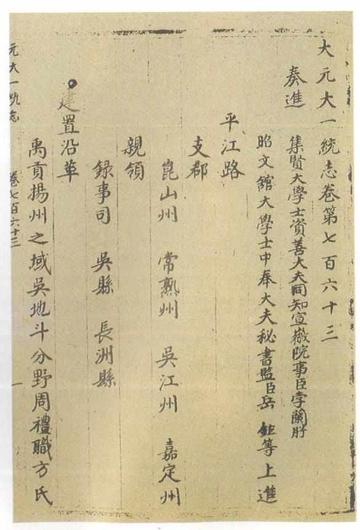 大元大一統志卷第七百六十三
奏進
集賢大學士資善大夫同知宣徽院事臣孛蘭肹
昭文館大學士中奉大夫秘書監臣岳 鉉等上進
平江路
支郡
崑山州 常熟州 吳江州 嘉定州
親領
錄事司 吳縣 長洲縣
建置沿革
禹貢揚州之域吳地斗分野周禮職方氏
元大一統志 卷七百六十三 一